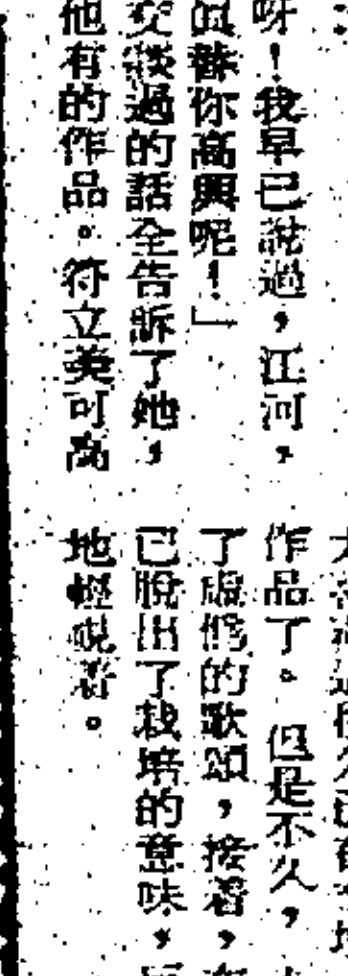 呀！我早已說過，江河，
真替你高興呢！」
交談過的話全告訴了她，
他有的作品。符立美可高
作品了。但是不久，
了虛僞的歌頌，接着，
已脫出了栽培的意味，
地輕視着。